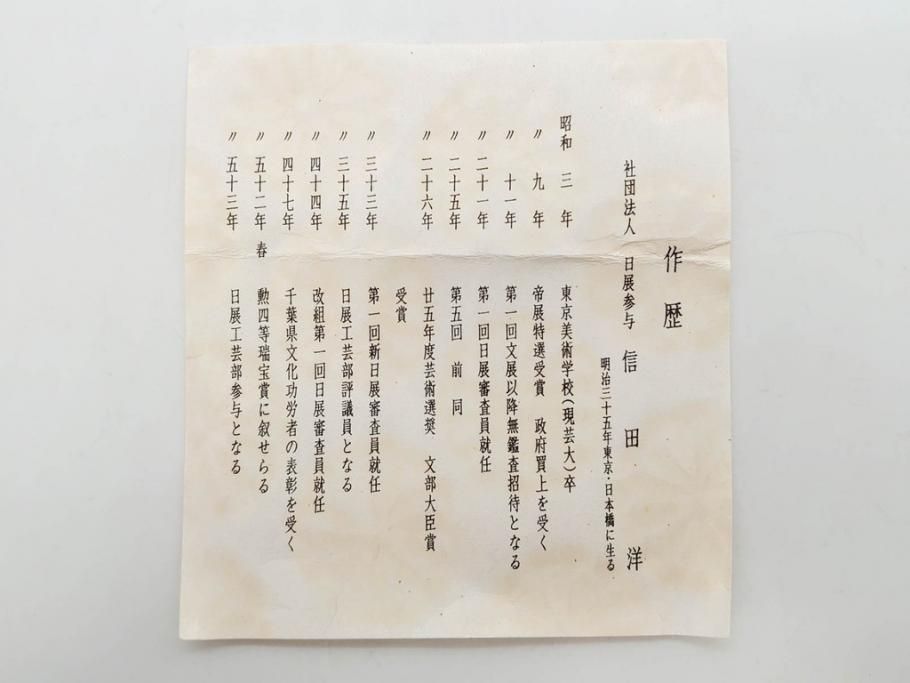 作歴
社団法人 日展参与 信田洋
明治三十五年東京・日本橋に生る
昭和 三 年 東京美術学校(現芸大)卒
〃 九 年 帝展特選受賞 政府買上を受く
〃 十一年 第一回文展以降無鑑査招待となる
〃 二十一年 第一回日展審査員就任
〃 二十五年 第五回 前 同
〃 二十六年 廿五年度芸術選奨 文部大臣賞
受賞
〃 三十三年 第一回新日展審査員就任
〃 三十五年 日展工芸部評議員となる
〃 四十四年 改組第一回日展審査員就任
〃 四十七年 千葉県文化功労者の表彰を受く
〃 五十二年 春 勲四等瑞宝賞に叙せらる
〃 五十三年 日展工芸部参与となる